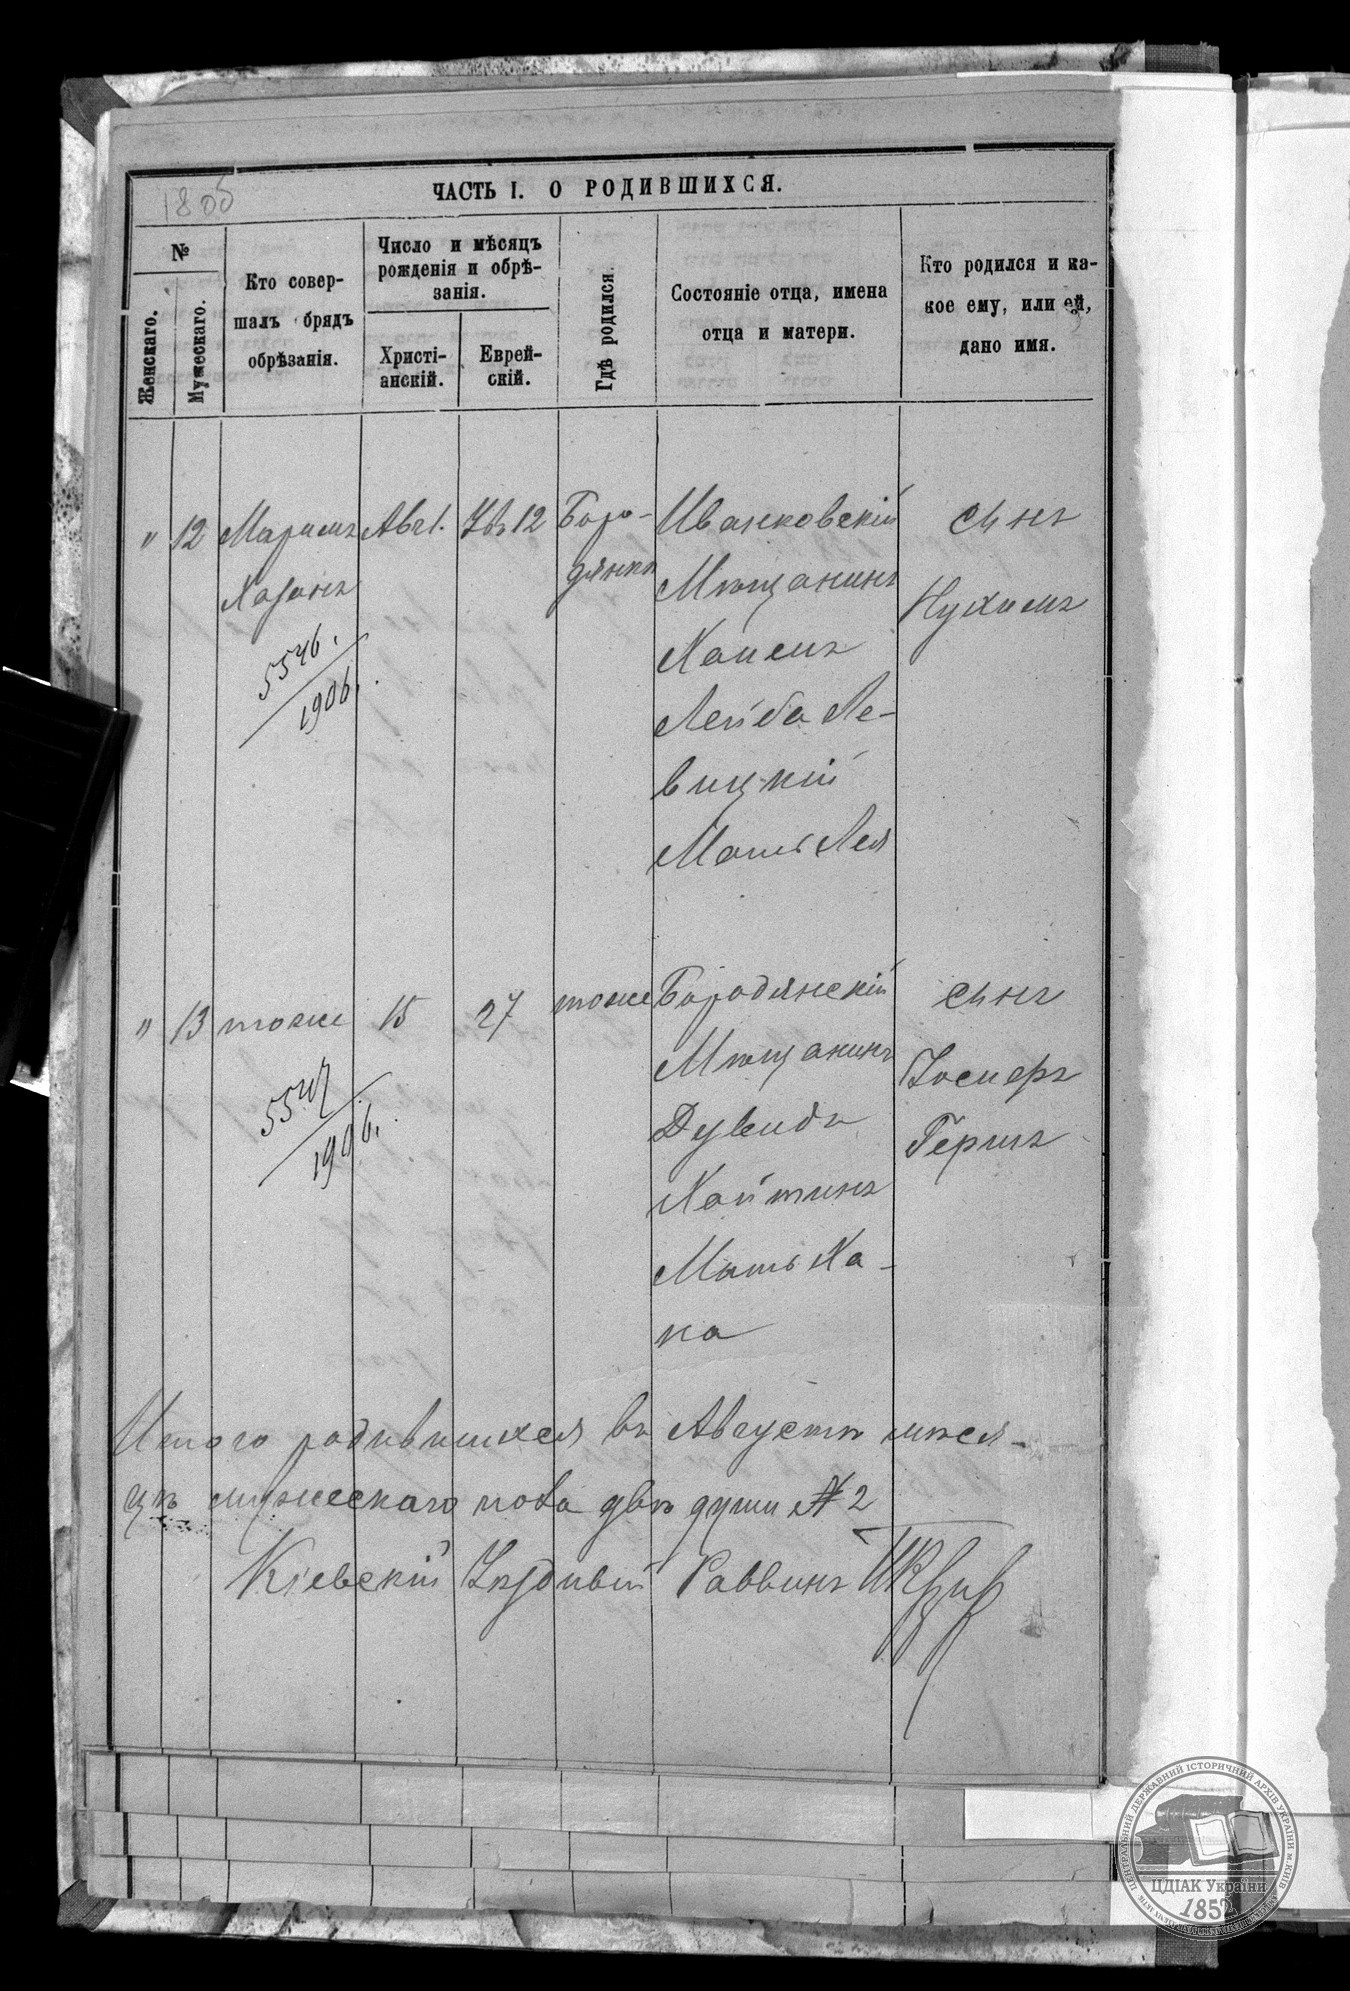 1805
ЧАСТЬ I. О РОДИВШИХСЯ.
№
Женскаго.
Мужескаго.
Кто совер-
шалъ брядъ
обрѣзанія.
Число и мѣсяцъ
рожденія и обрѣ-
занія.
Христі-
анскій.
Еврей-
скій.
Гдѣ родился.
Состояніе отца, имена
отца и матери.
Кто родился и ка-
кое ему, или ей,
дано имя.
" 12
Хазанъ
5546.
1906.
Авг 1.
12
Боро-
дянка
Иванковскій
Мѣщанинъ
Хаимъ
Лейба Ле-
вицкій
Мать Лея
сынъ
Нухимъ
" 13 тоже 15 27 тоже
5547
1906.
Бородянскій
Мѣщанинъ
Дувидъ
Хайтинъ
Мать Ха-
на
сынъ
Іосифъ
Гершъ
Итого родившихся въ Августѣ мѣся-
цѣ мужескаго пола двѣ души № 2
Кіевскій Уѣздный Раввинъ
ЦЕНТРАЛЬНИЙ ДЕРЖАВНИЙ ІСТОРИЧНИЙ АРХІВ УКРАЇНИ м. КИЇВ
ЦДІАК України
1852